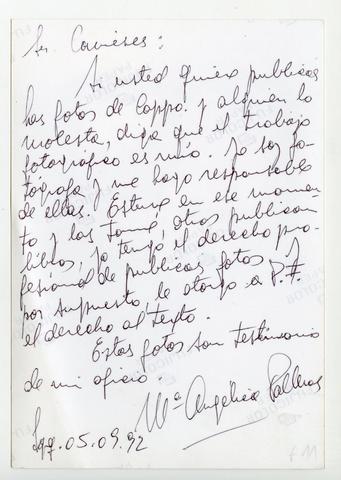 Sr. Canieses:
Si usted quiere publicar
las fotos de Coppo. y alguien lo
molesta, diga que el trabajo
fotográfico es mío. Yo soy fo-
tógrafa y me hago responsable
de ellas. Estuve en ese momen-
to y las tomé, otros publican
libros, yo tengo el derecho pro-
fesional de publicar fotos y
por supuesto, le otorgo a P.F.
el derecho al texto.
Estas fotos son testimonio
de mi oficio.
Mª Angélica Palleras
05.09.92